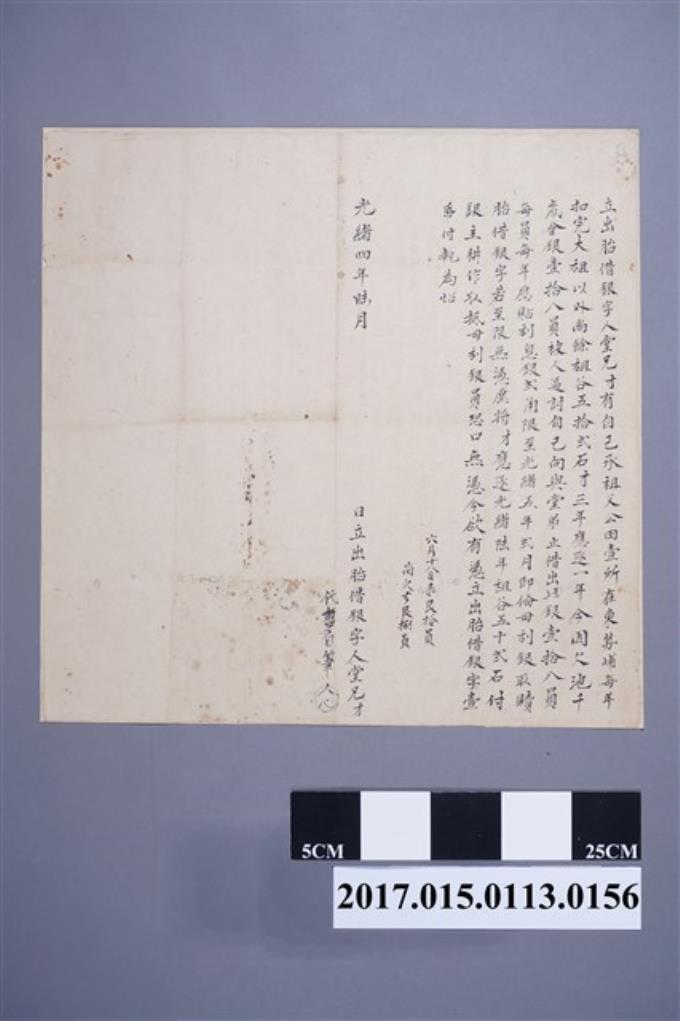 立出胎借銀字人堂兄才有自己承祖父公田壹所在東勢埔每年
扣完大祖以外尚餘祖谷五拾弍石才三年應逐一年今因欠池千
歲會銀壹拾八員被人迫討自己向與堂弟 借出 銀壹拾八員
每員每年應貼利息銀弍角限至光緒五年弍月即偹母利銀取贖
胎借銀字若至限無憑愿將才應逐光緒陸年祖谷五十弍石付
銀主耕作收抵母利銀員恐口無憑今欲有憑立出胎借銀字壹
昏付執為炤
六月十八日 艮拾員
尚欠 艮捌員
光緒四年陆月
日立出胎借銀字人堂兄才
代 筆人
5CM 25CM
2017.015.0113.0156